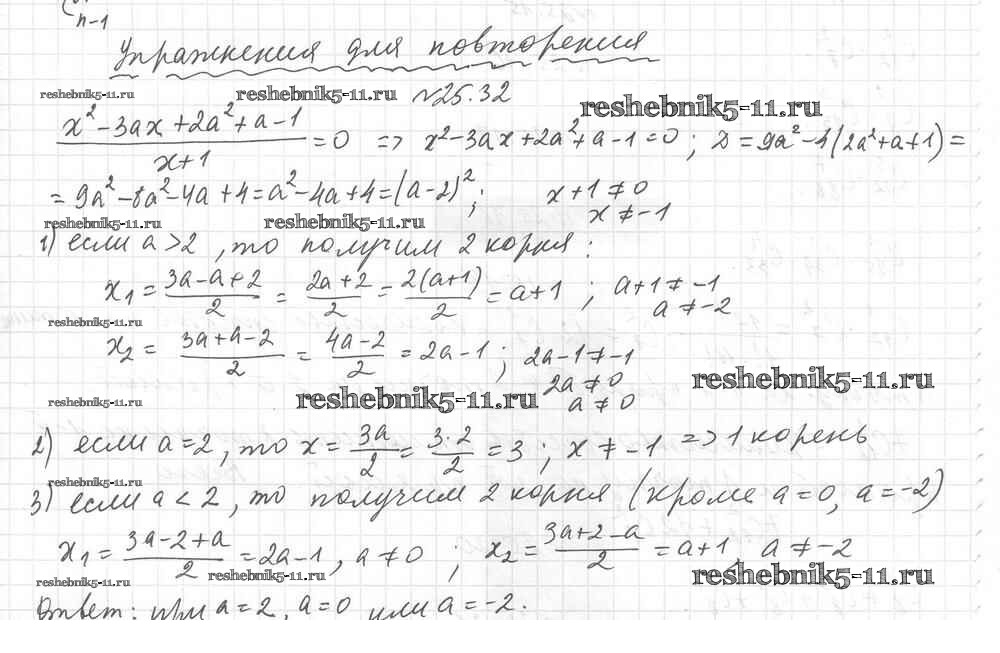 n-1
Упражнения для повторения
reshebnik5-11.ru reshebnik5-11.ru №25.32 reshebnik5-11.ru
(x²-3ax+2a²+a-1)/(x+1) =0 => x²-3ax+2a²+a-1=0; D=9a²-4(2a²+a+1)=
=9a²-8a²-4a+4=a²-4a+4=(a-2)²; x+1≠0
x≠-1
reshebnik5-11.ru reshebnik5-11.ru
1) если a>2, то получим 2 корня:
x₁=(3a-a+2)/2=(2a+2)/2=(2(a+1))/2=a+1; a+1≠-1
a≠-2
reshebnik5-11.ru
x₂=(3a+a-2)/2=(4a-2)/2=2a-1; 2a-1≠-1
2a≠0
reshebnik5-11.ru
a≠0
reshebnik5-11.ru reshebnik5-11.ru
2) если a=2, то x=3a/2=(3·2)/2=3; x≠-1 => 1 корень
reshebnik5-11.ru
3) если a<2, то получим 2 корня (кроме a=0, a=-2)
x₁=(3a-2+a)/2=2a-1, a≠0; x₂=(3a+2-a)/2=a+1, a≠-2
reshebnik5-11.ru reshebnik5-11.ru reshebnik5-11.ru
Ответ: при a=2, a=0 или a=-2.